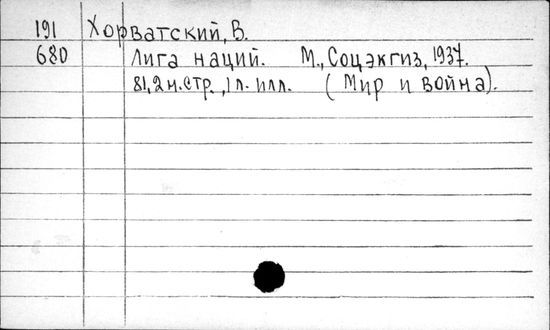 191 Хорватский, В.
680 Лига наций. М., Соцэкгиз, 1937.
81, 2 н. стр., 1 л. илл. (Мир и война).